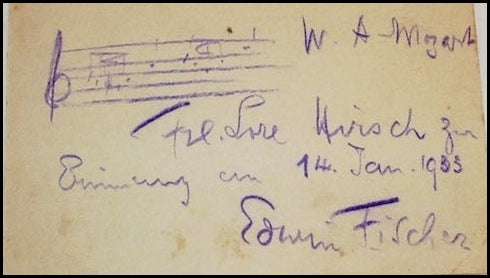 W. A Mozart
Frl. Lore Hirsch zu
Erinnerung an 14. Jan. 1933
Edwin Fischer